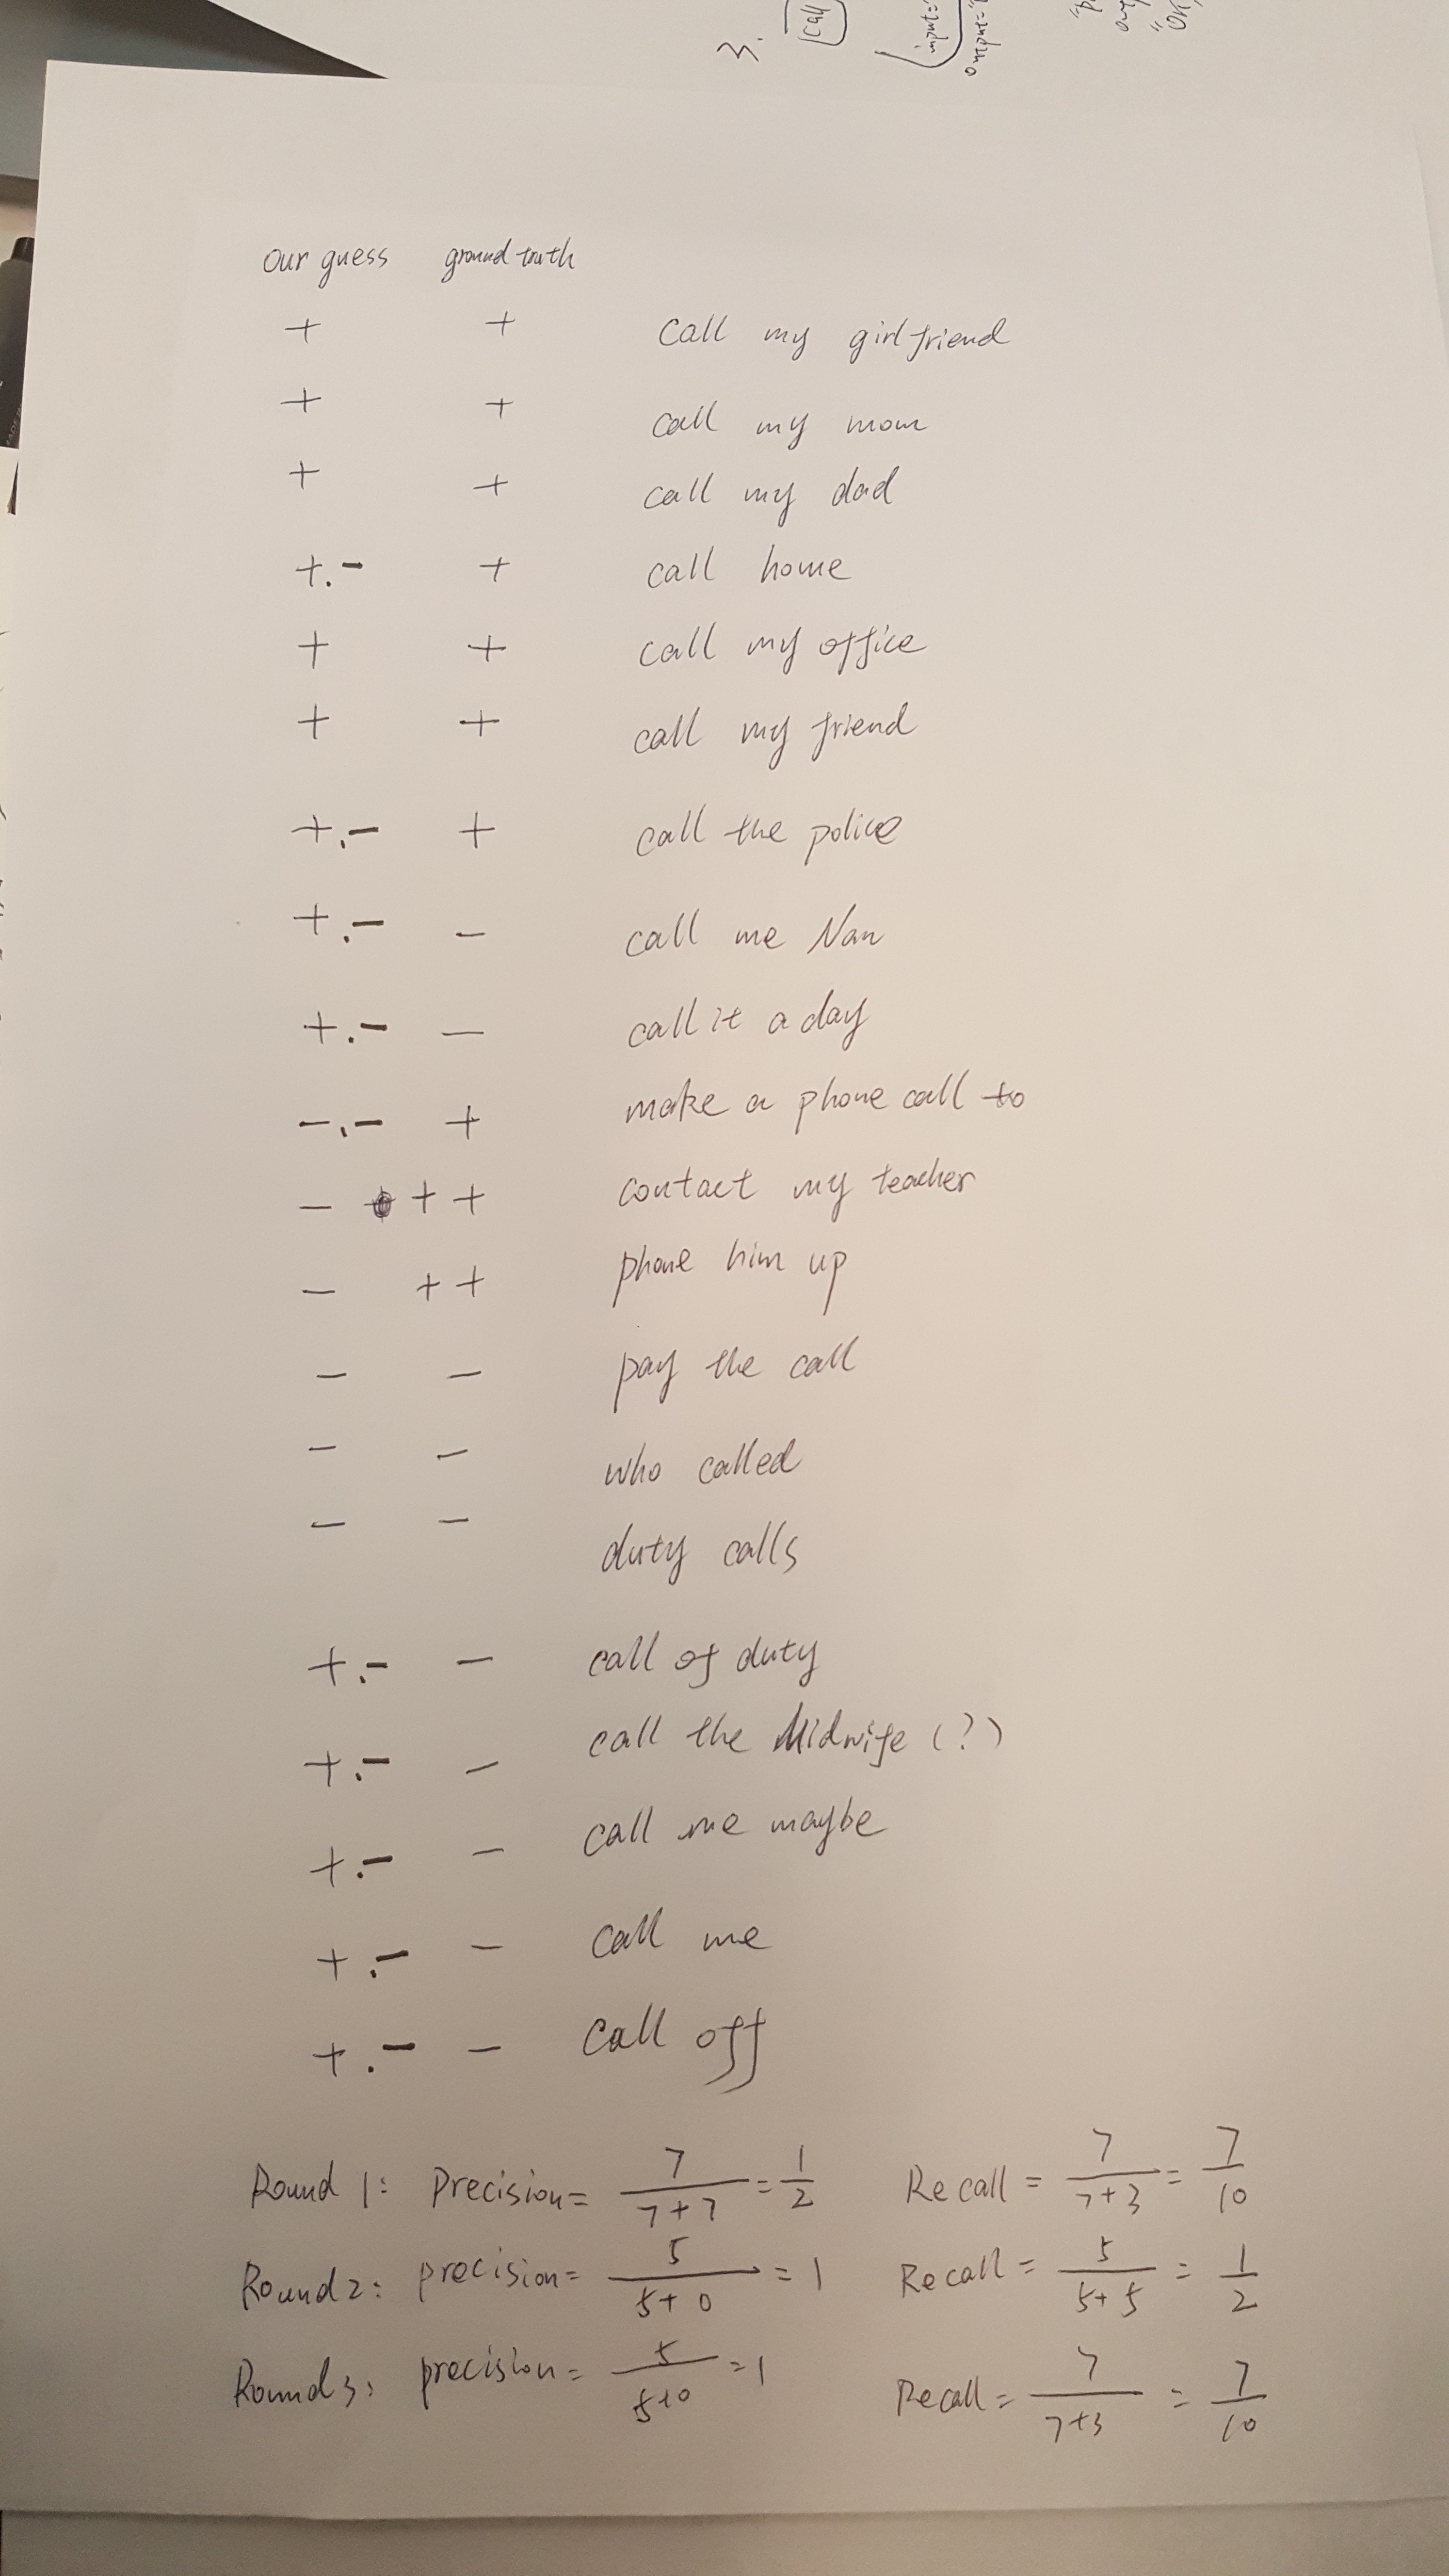 3. call
input=
output=
Our guess ground truth
+ + call my girlfriend
+ + call my mom
+ + call my dad
+.- + call home
+ + call my office
+ + call my friend
+.- + call the police
+.- - call me Nan
+.- - call it a day
-.- + make a phone call to
- + + contact my teacher
- + + phone him up
- - pay the call
- - who called
- - duty calls
+.- - call of duty
+.- - call the Midwife (?)
+.- - call me maybe
+.- - call me
+.- - call off
Round 1: Precision= 7/7+7 = 1/2 Recall = 7/7+3 = 7/10
Round2: precision= 5/5+0 = 1 Recall = 5/5+5 = 1/2
Round3: precision= 5/5+0 = 1 Recall = 7/7+3 = 7/10